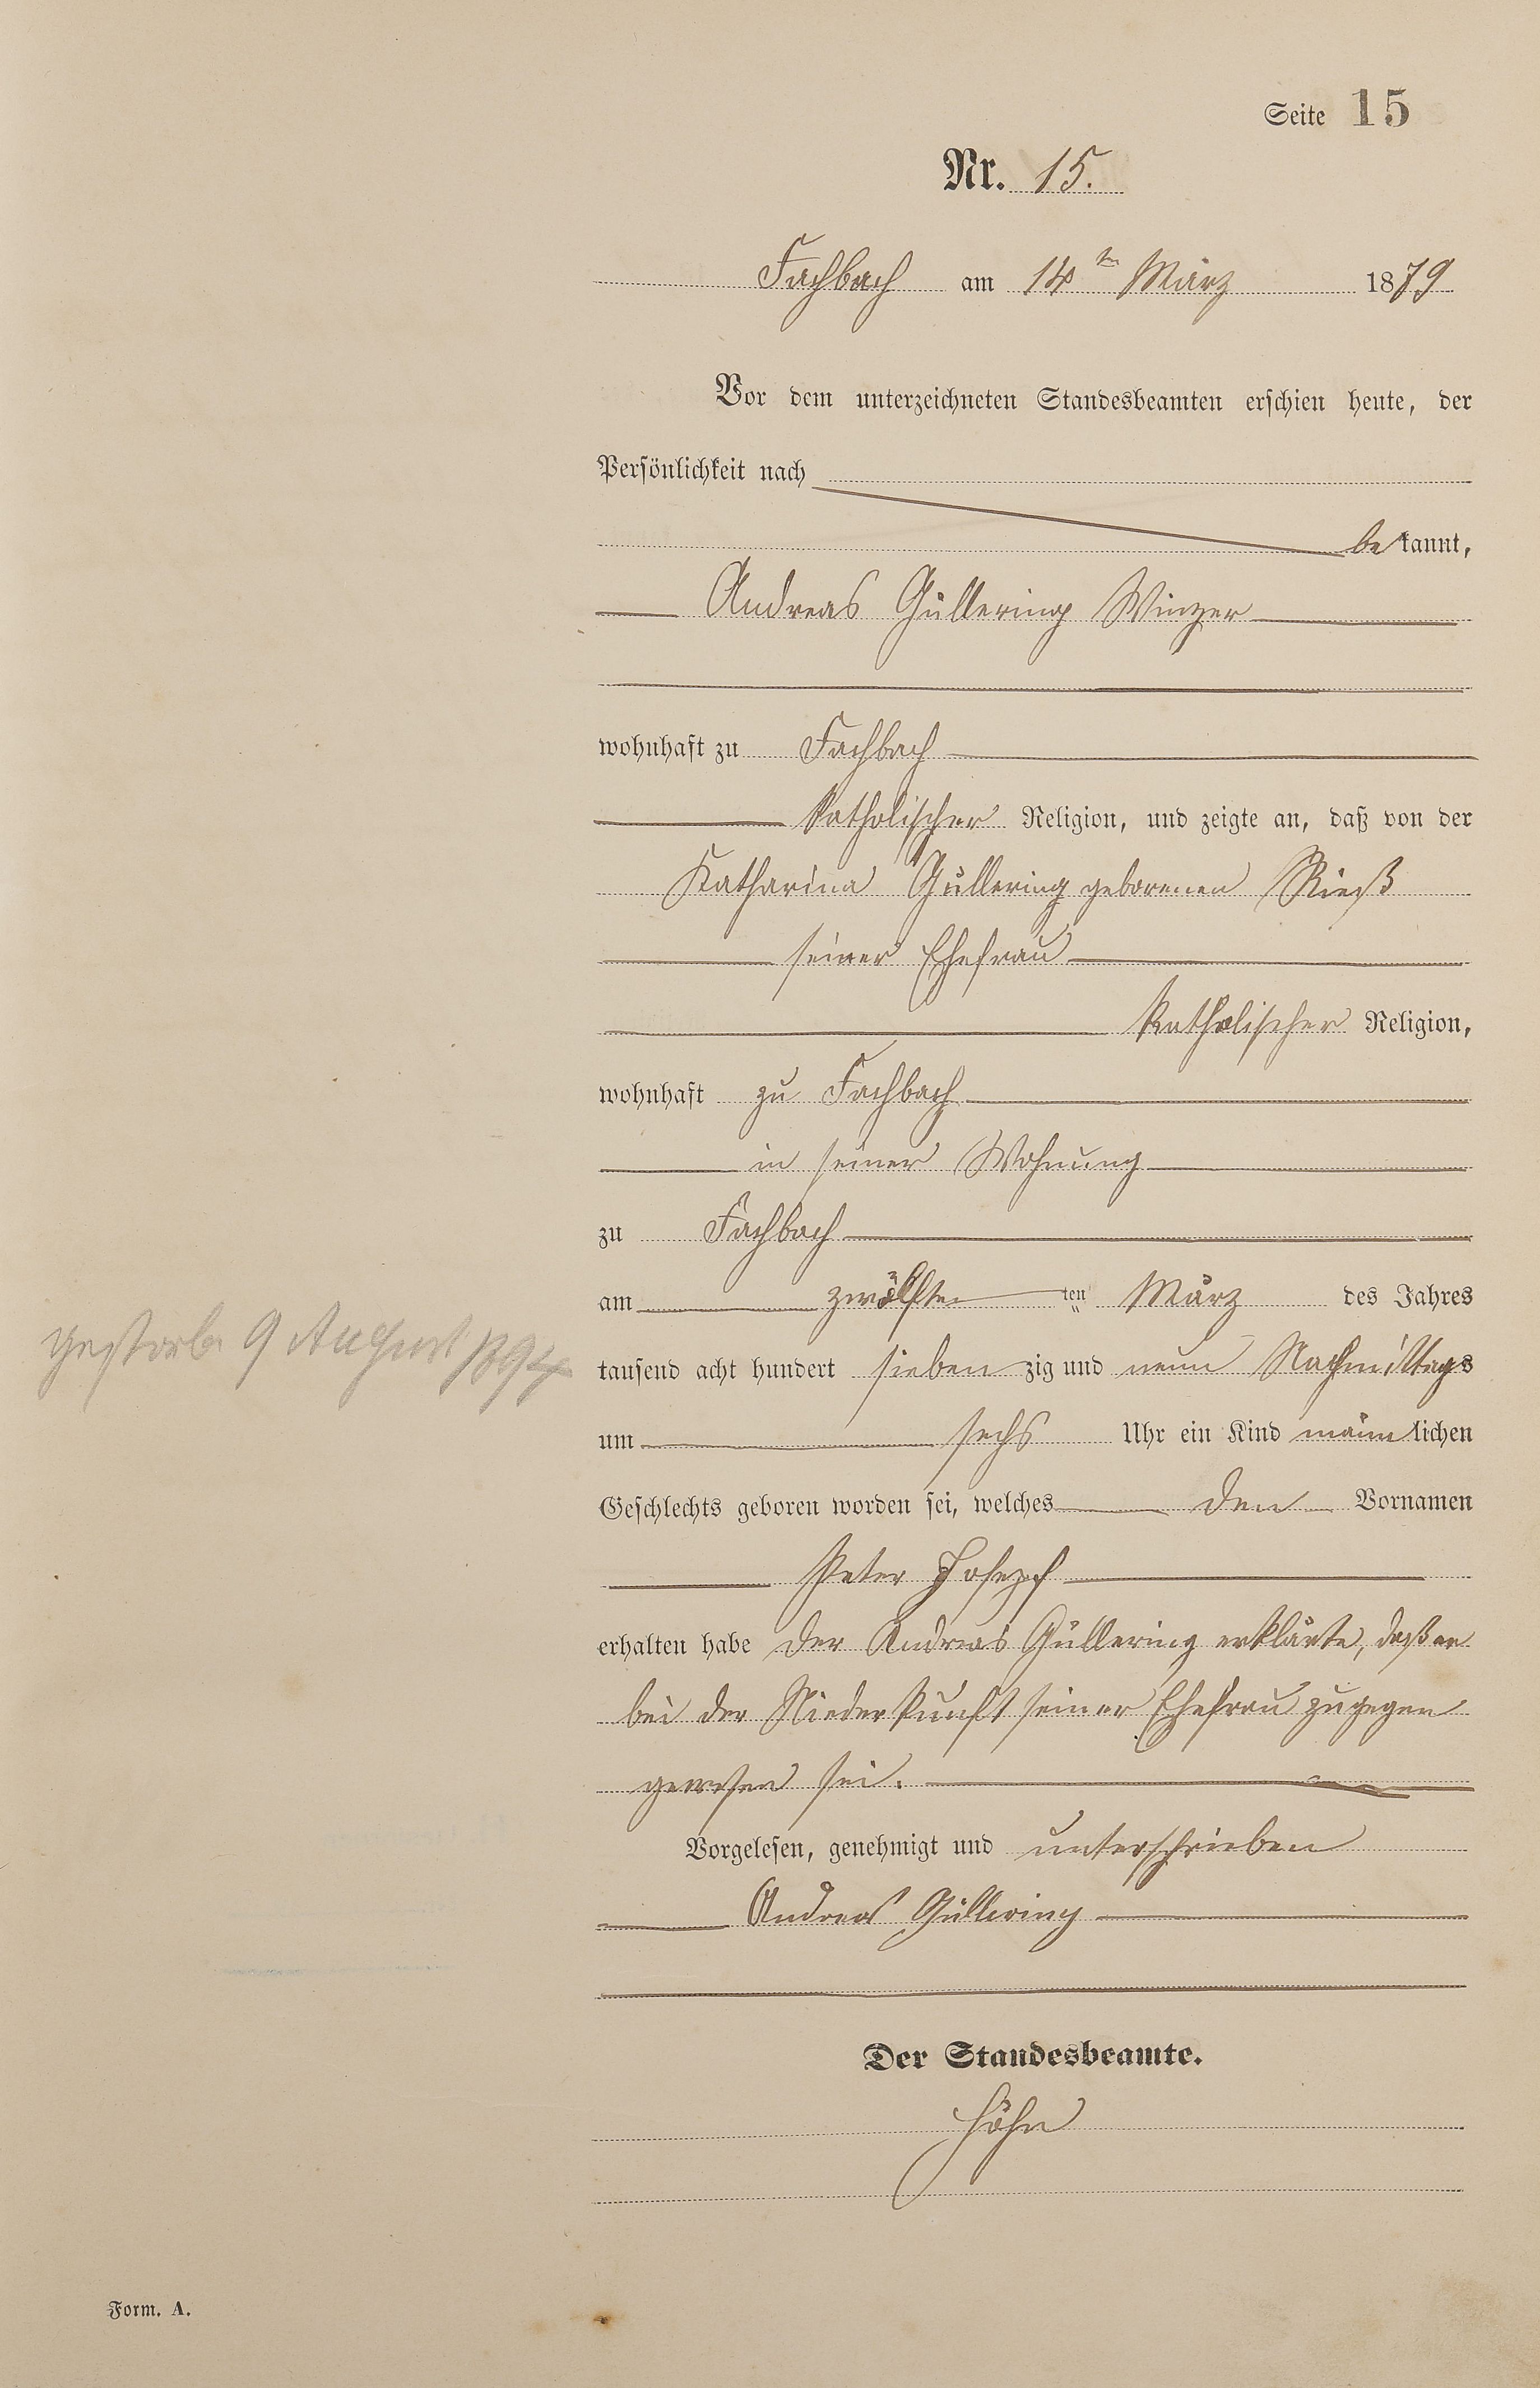 Seite 15
Nr. 15.
Fachbach am 14ten März 1879
Vor dem unterzeichneten Standesbeamten erschien heute, der
Persönlichkeit nach
bekannt,
Andreas Güllering Winzer
wohnhaft zu Fachbach
katholischer Religion, und zeigte an, daß von der
Katharina Güllering geborenen Rieß
seiner Ehefrau
katholischer Religion,
wohnhaft zu Fachbach
in seiner Wohnung
zu Fachbach
am zwölften ten März des Jahres
gestorb. 9 August 1894
tausend acht hundert siebenzig und neun Nachmittags
um sechs Uhr ein Kind männlichen
Geschlechts geboren worden sei, welches den Vornamen
Peter Josepf
erhalten habe der Andreas Güllering erklärte, daß er
bei der Niederkunft seiner Ehefrau zugegen
gewesen sei.
Vorgelesen, genehmigt und unterschrieben
Andreas Güllering
Der Standesbeamte.
Höhn
Form. A.